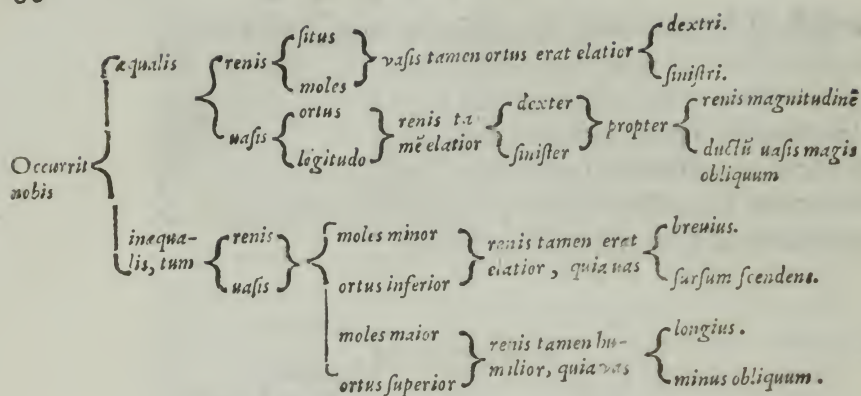 æqualis
renis
ſitus
moles
vaſis tamen ortus erat elatior
dextri.
ſiniſtri.
uaſis
ortus
lõgitudo
renis ta
mẽ elatior
dexter
ſiniſter
propter
renis magnitudinẽ
ductũ uaſis magis
obliquum
Occurrit
nobis
inæqua-
lis, tum
renis
uaſis
moles minor
ortus inferior
renis tamen erat
elatior, quia uas
breuius.
ſurſum ſcendens.
moles maior
ortus ſuperior
renis tamen hu-
milior, quia vas
longius.
minus obliquum.